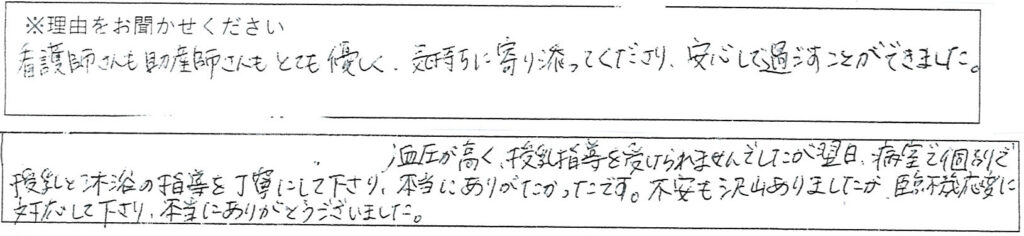 ※理由をお聞かせください
看護師さんも助産師さんもとても優しく、気持ちに寄り添ってくださり、安心して過ごすことができました。
血圧が高く、授乳指導を受けられませんでしたが翌日、病室で個別で
授乳と沐浴の指導を丁寧にして下さり、本当にありがたかったです。不安も沢山ありましたが、臨機応変に
対応して下さり、本当にありがとうございました。